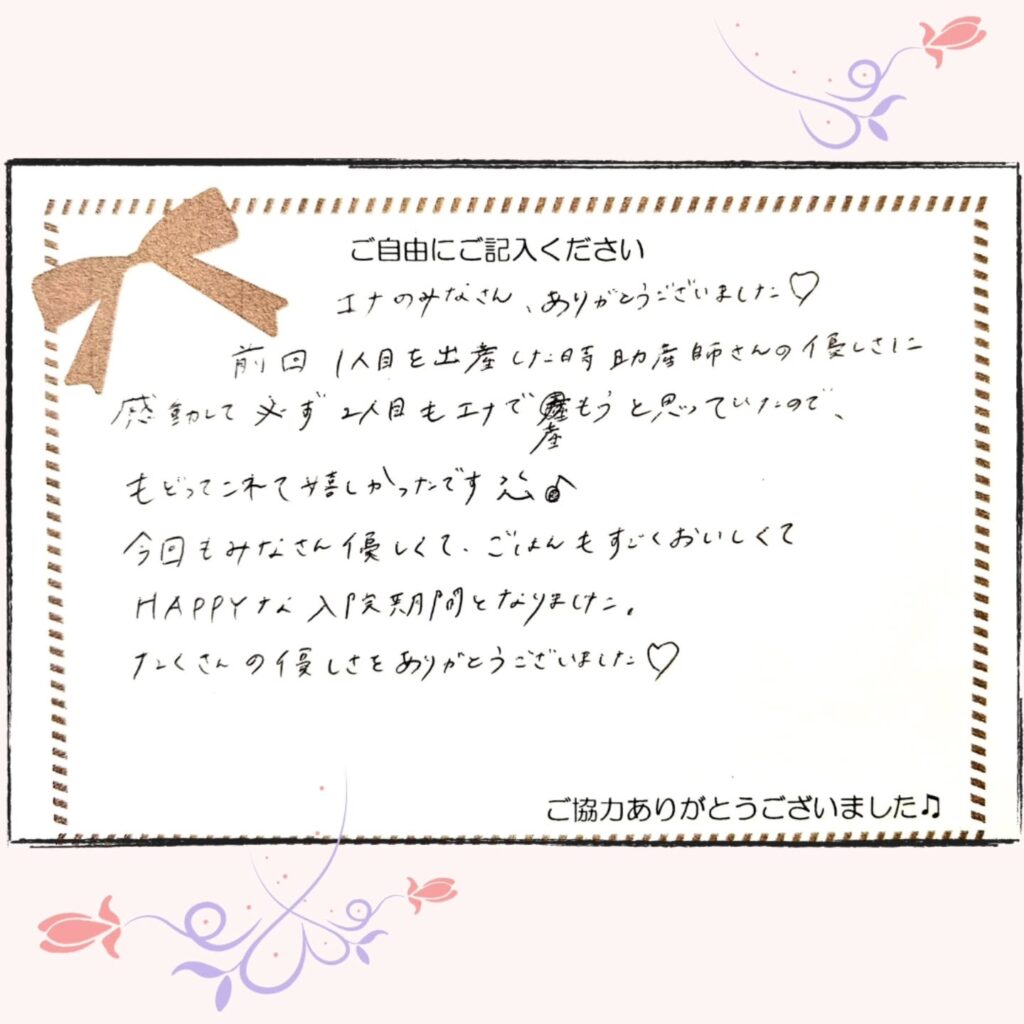 ご自由にご記入ください
エナのみなさん、ありがとうございました♡
前回 1人目を出産した時 助産師さんの優しさに
感動して 必ず 2人目もエナで産もうと思っていたので、
もどってこれて嬉しかったです
今回もみなさん優しくて、ごはんもすごくおいしくて
HAPPYな 入院期間となりました。
たくさんの優しさをありがとうございました♡
ご協力ありがとうございました♫